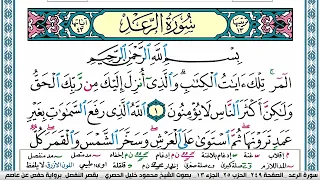 سُورَةُ الرَّعْدِ
بِسْمِ اللَّهِ الرَّحْمَٰنِ الرَّحِيمِ
الٓمٓر ۚ تِلْكَ ءَايَٰتُ الْكِتَٰبِ ۗ وَالَّذِىٓ أُنزِلَ إِلَيْكَ مِن رَّبِّكَ الْحَقُّ
وَلَٰكِنَّ أَكْثَرَ النَّاسِ لَا يُؤْمِنُونَ ١ اللَّهُ الَّذِى رَفَعَ السَّمَٰوَٰتِ بِغَيْرِ
عَمَدٍ تَرَوْنَهَا ۖ ثُمَّ اسْتَوَىٰ عَلَى الْعَرْشِ ۖ وَسَخَّرَ الشَّمْسَ وَالْقَمَرَ ۖ كُلٌّ
سورة الرعد - الصفحة ٢٤٩ - الجزء ١٣ - الحزب ٢٥ - بصوت الشيخ محمود خليل الحصري - بقصر المنفصل برواية حفص عن عاصم